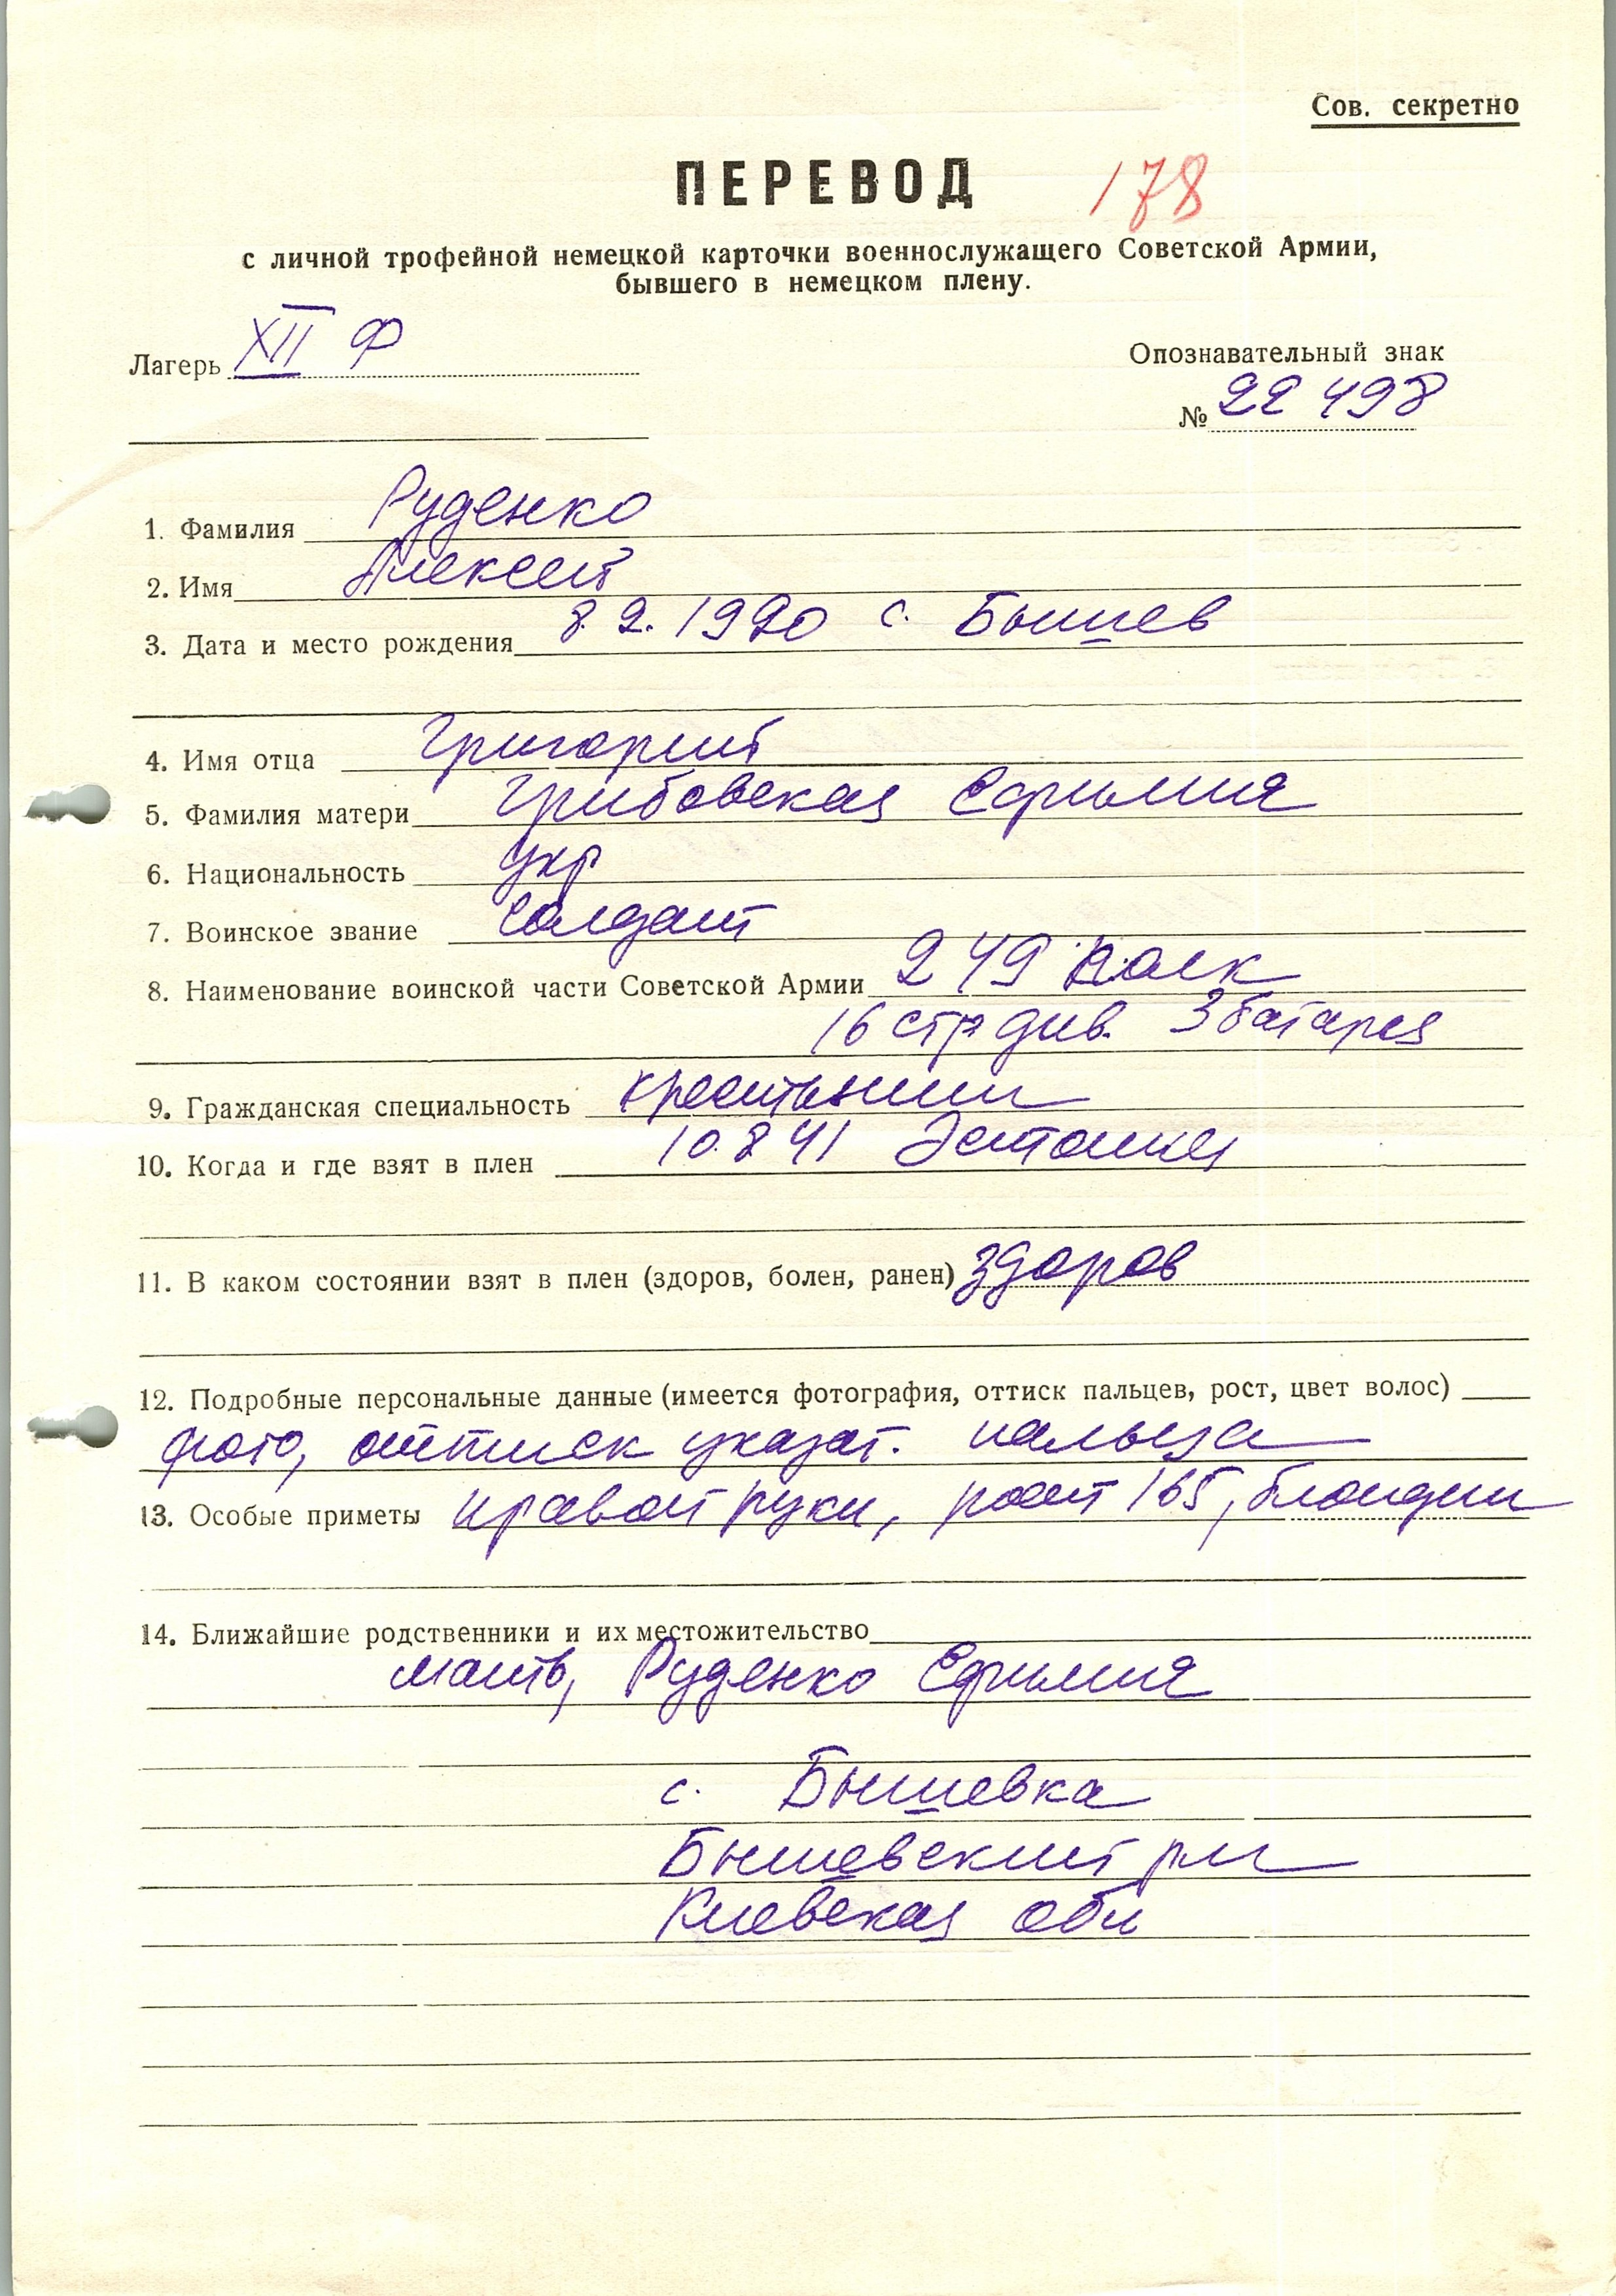 Сов. секретно
ПЕРЕВОД 178
с личной трофейной немецкой карточки военнослужащего Советской Армии,
бывшего в немецком плену.
Лагерь XII Ф
Опознавательный знак
№ 22 498
1. Фамилия Руденко
2. Имя Алексей
3. Дата и место рождения 8.2.1920 с. Бышев
4. Имя отца Григорий
5. Фамилия матери Грибовская Ефимия
6. Национальность укр
7. Воинское звание солдат
8. Наименование воинской части Советской Армии 249 полк
16 стр див. 3 батарея
9. Гражданская специальность крестьянин
10. Когда и где взят в плен 10.8 41 Эстония
11. В каком состоянии взят в плен (здоров, болен, ранен) здоров
12. Подробные персональные данные (имеется фотография, оттиск пальцев, рост, цвет волос)
фото, оттиск указат. пальца
13. Особые приметы правой руки, рост 165, блондин
14. Ближайшие родственники и их местожительство
мать, Руденко Ефимия
с. Бышевка
Бышевский рн
Киевская обл